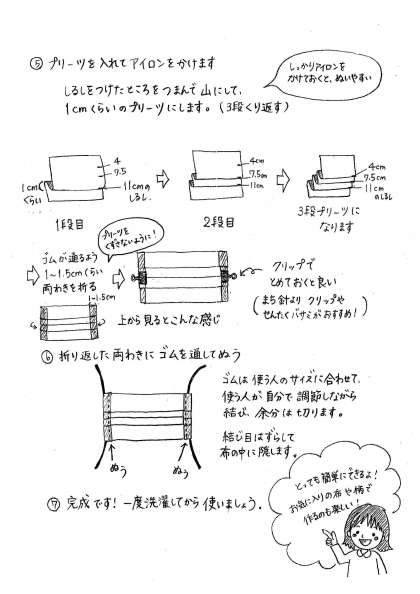 ⑤ プリーツを入れてアイロンをかけます
しっかりアイロンを
かけておくと、ぬいやすい
しるしをつけたところをつまんで山にして、
1cmくらいのプリーツにします。(3段くり返す)
4
7.5
1cm
くらい
11cmの
しるし
1段目
4cm
7.5cm
11cm
2段目
4cm
7.5cm
11cm
のしるし
3段プリーツに
なります
プリーツを
くずさないように!
ゴムが通るよう
1~1.5cmくらい
両わきを折る
1~1.5cm
上から見るとこんな感じ
クリップで
とめておくと良い
(まち針より クリップや
せんたくバサミがおすすめ!)
⑥ 折り返した両わきにゴムを通してぬう
ぬう
ぬう
ゴムは使う人のサイズに合わせて、
使う人が自分で調節しながら
結び、余分は切ります。
結び目はずらして
布の中に隠します。
⑦ 完成です!一度洗濯してから使いましょう.
とっても簡単にできるよ!
お気に入りの布や柄で
作るのも楽しい!